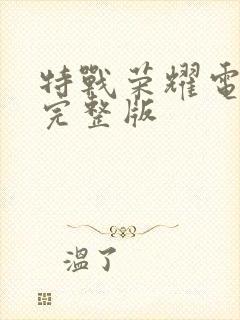 特戰荣耀電
完整版
溫了